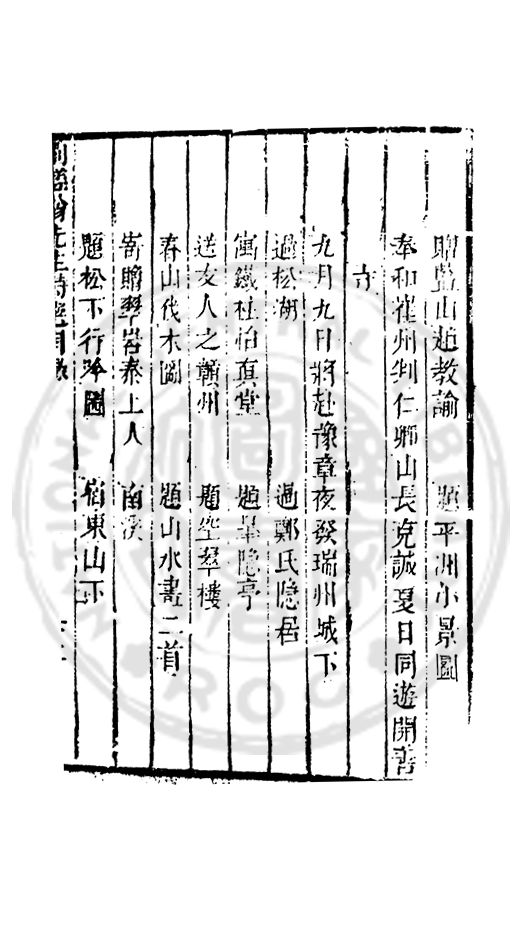 贈監山趙教諭 題平洲小景圖
奉和崔州判仁卿山長克誠夏日同遊開善
寺
九月九日將赴豫章夜發瑞州城下
過松湖 過鄭氏隱居
寓鐵柱怡真堂 題皋隱亭
送友人之贛州 題空翠樓
春山伐木圖 題山水畫二首
寄贈翠岩泰上人 南溪
題松下行吟圖 宿東山下
先生詩